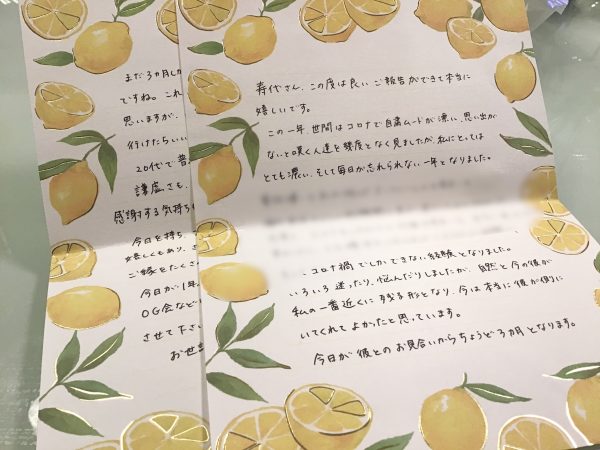 寿代さん、この度は良いご報告ができて本当に
嬉しいです。
この一年、世間はコロナで自粛ムードが漂い、思い出が
ないと嘆く人達を幾度となく見ましたが、私にとっては
とても濃い、そして毎日が忘れられない一年となりました。
コロナ禍でしかできない経験となりました。
いろいろ迷ったり、悩んだりしましたが、自然と今の彼が
私の一番近くに残る形となり、今は本当に彼が側に
いてくれてよかったと思っています。
今日が彼とのお見合いからちょうど3カ月となります。
まだ3カ月しか
ですね。これ
思いますが、
行けたらいい
20代で普
謙虚さも、
感謝する気持ち
今日を持ち、
嬉しくもあり、さ
ご縁をたくさ
今日が1年
OG会など
させて下さい
お世